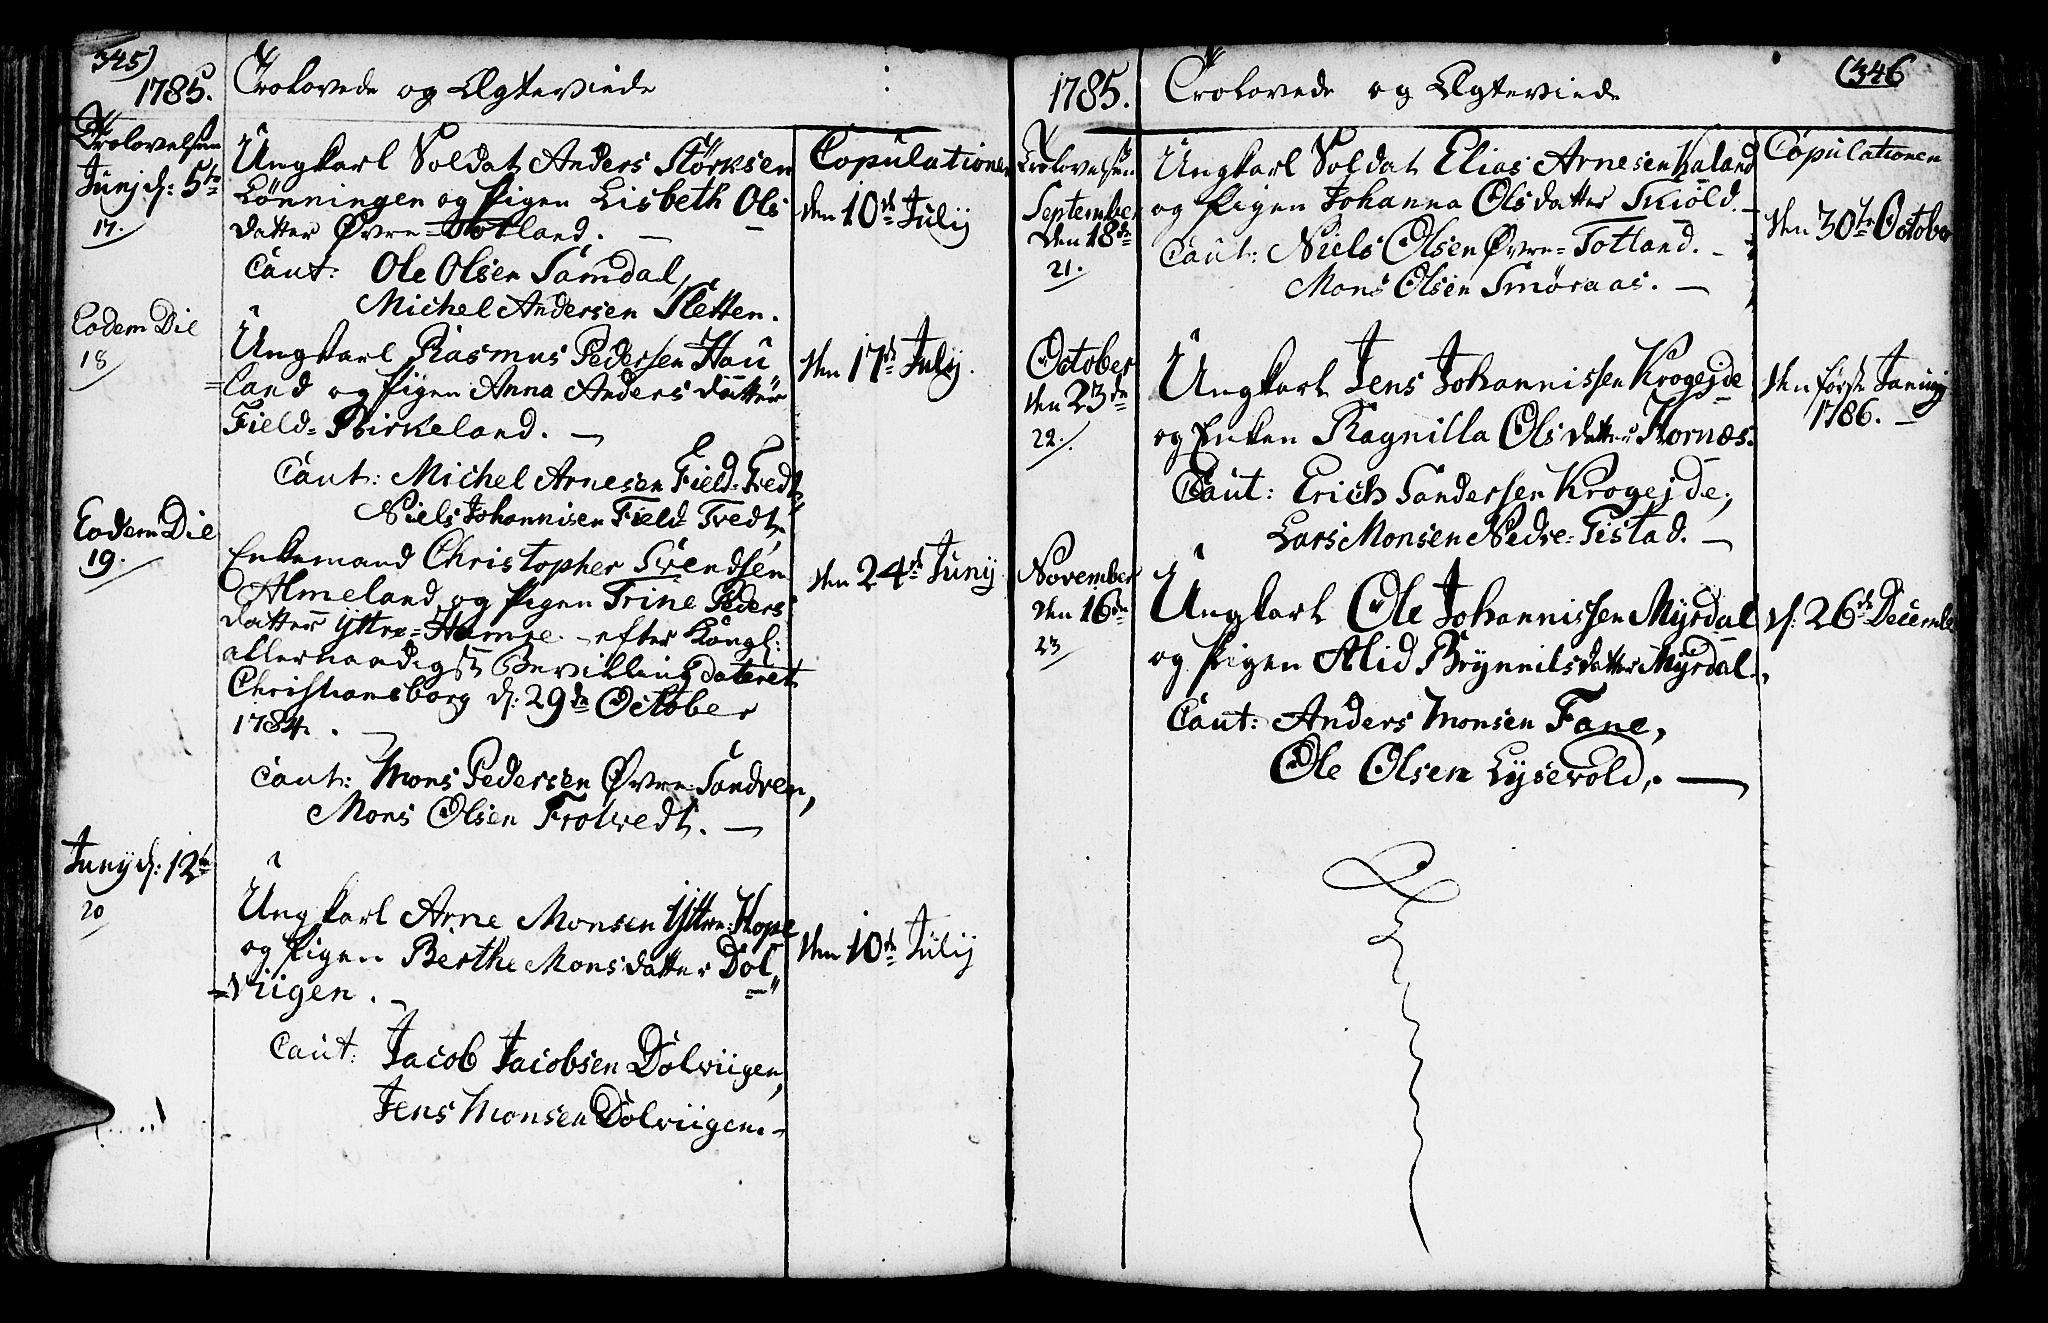 345)
1785.
Trolovede og Ægteviede
Trolovelsen
Junj d: 5te
17.
Ungkarl Soldat Anders Størksen
Lønningen og Pigen Lisbeth Ols
datter Øvre=Totland. —
Caut: Ole Olsen Samdal,
Michel Andersen Sletten.
Copulationen
den 10de Julij
Eodem Die
18
Ungkarl Rasmus Pedersen Hau
=land og Pigen Anna Anders datter
Field=Birkeland. —
Caut: Michel Arnesen Field=Tredt,
Niels Johannisen Field Tvedt.
den 17de Julij.
Eodem Die
19.
Enkemand Christopher Svendsen
Almeland og Pigen Trine Peders
datter Yttre=Hamre. — efter Kongl:
allernaadigst Bevilling dateret
Christiansborg d: 29de October
1784. . —
Caut: Mons Pedersen Øvre Sandven,
Mons Olsen Frotvedt. —
den 24de Junij
Junij d: 12te
20
Ungkarl Arne Monsen Yttre=Hope
og Pigen Berthe Monsdatter Dol"
=viigen. —
Caut: Jacob Jacobsen Dolviigen,
Jens Monsen Dolviigen. —
den 10de Julij
(346
1785.
Trolovede og Ægteviede
Trolovelsen
September
den 18de
21.
Ungkarl Soldat Elias Arnesen Kaland
og Pigen Johanna Olsdatter Skiold. —
Caut: Niels Olsen Øvre=Totland. —
Mons Olsen Smøraas. —
Copulationen
den 30te October
October
den 23de
22.
Ungkarl Jens Johannissen Krogejde
og Enken Ragnilla Olsdatter Hornæs.
Caut: Erich Sandersen Krogejde,
Lars Monsen Nedre=Tistad. —
den første Januarij
1786. —
November
den 16de
23
Ungkarl Ole Johannissen Myrdal
og Pigen Alid Brynnilsdatter Myrdal.,
Caut: Anders Monsen Fane,
Ole Olsen Lysevold,. —
d: 26de Decembr